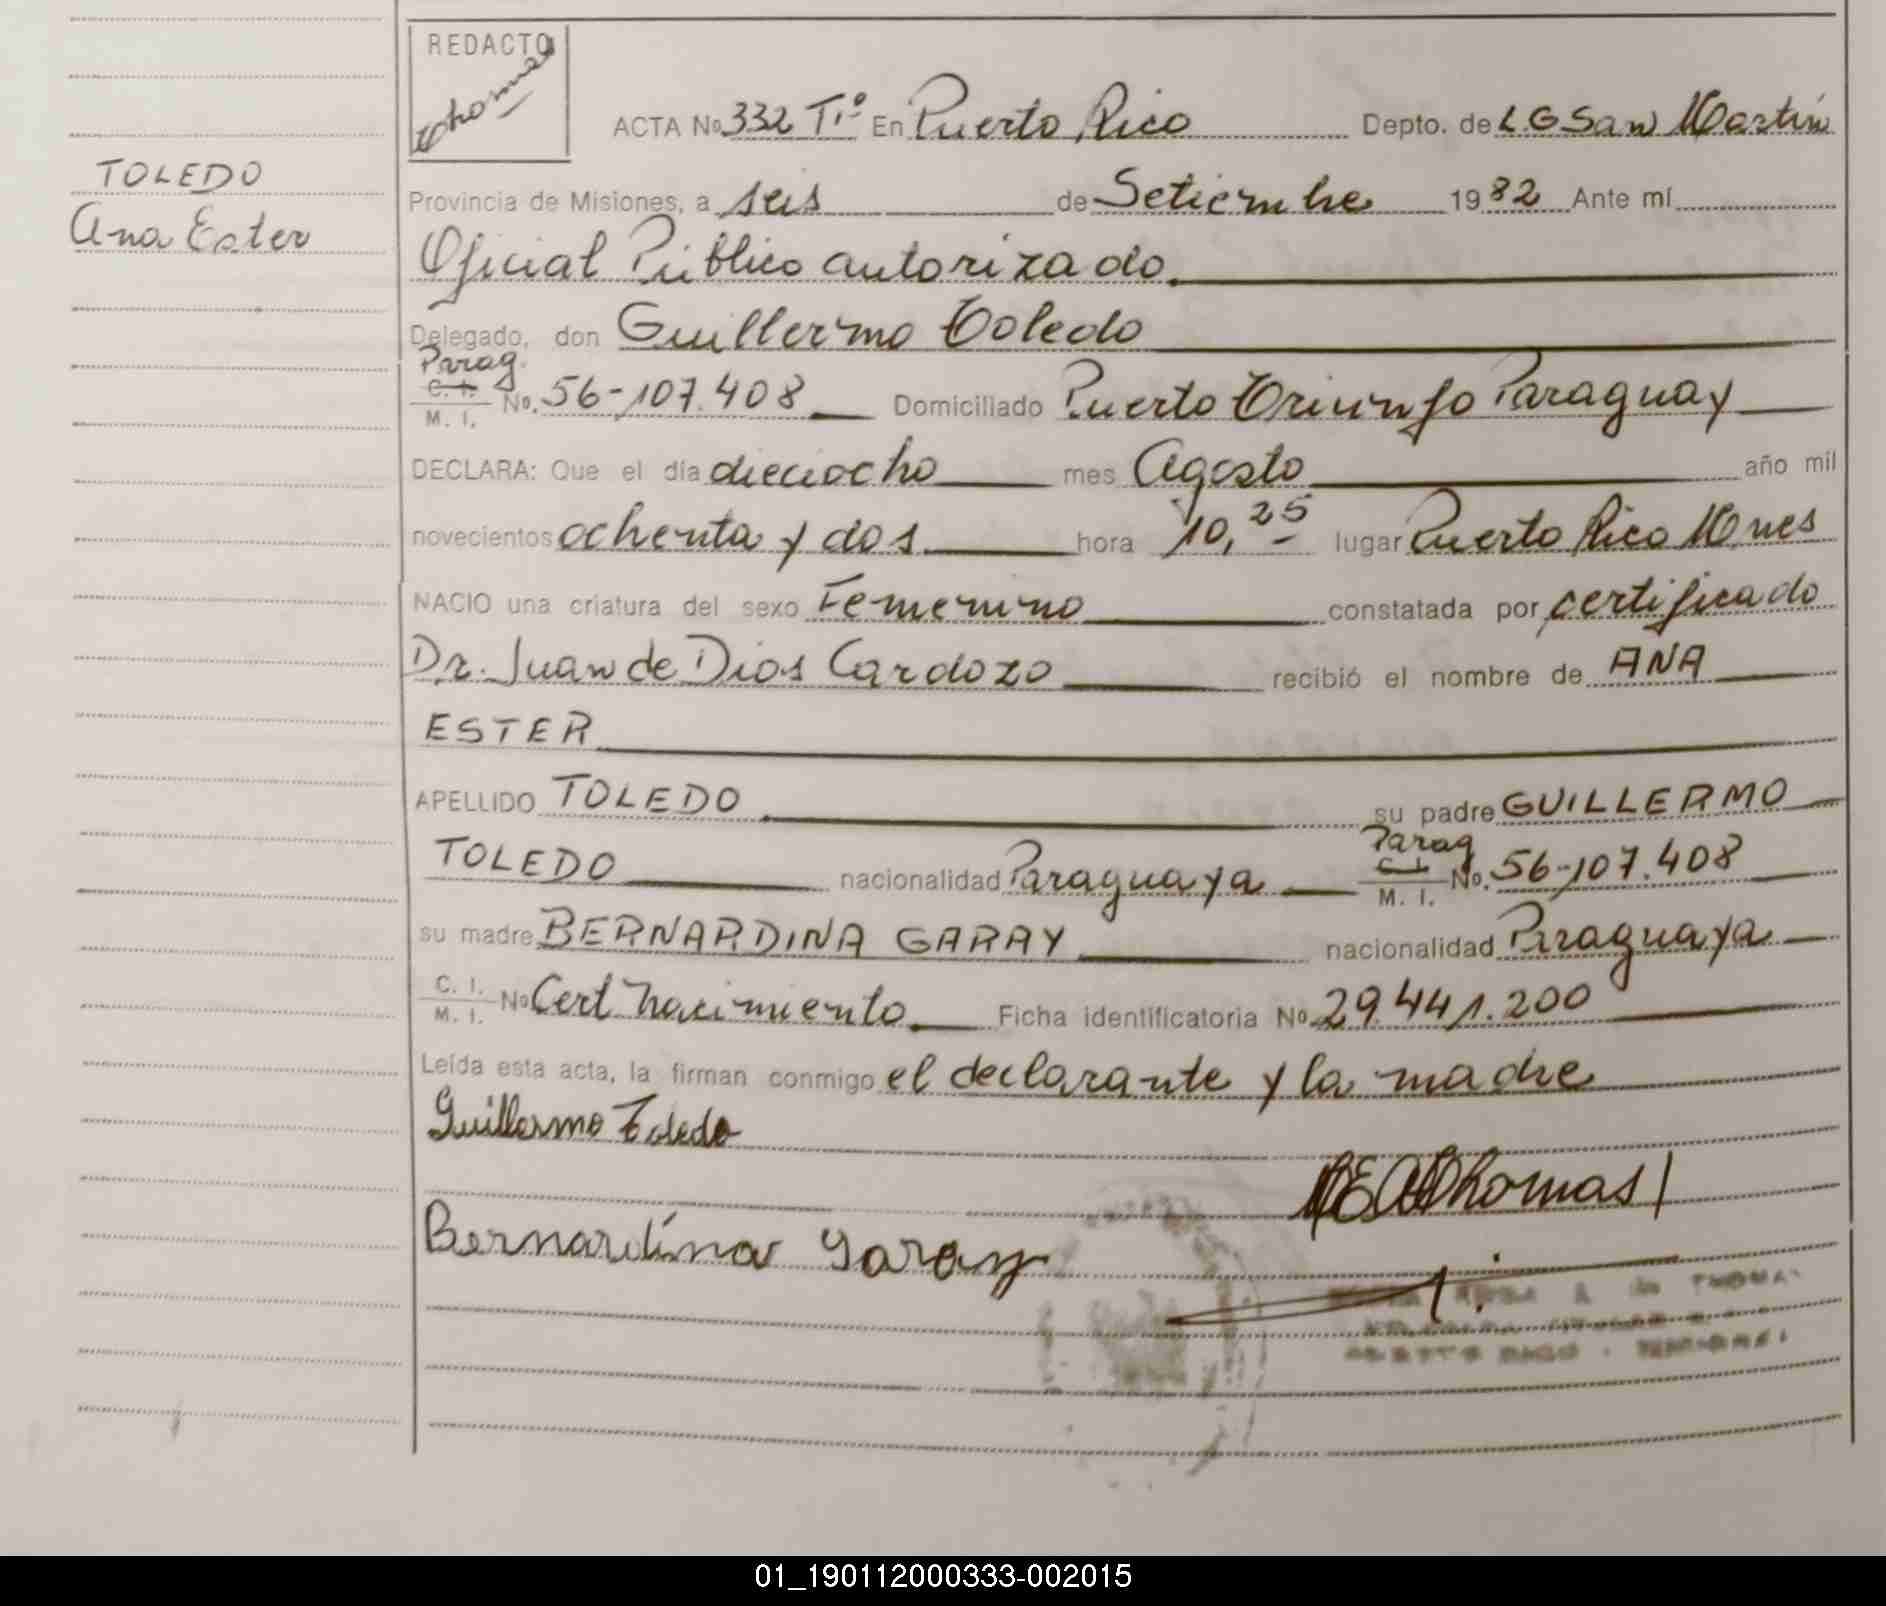 REDACTO
Thomas
ACTA No 332 Tº En Puerto Rico Depto. de L.G San Martín
TOLEDO
Ana Ester
Provincia de Misiones, a seis de Setiembre 1982 Ante mí
Oficial Público autorizado
Delegado, don Guillermo Toledo
Parag.
C. I.
M. I. No. 56-107.408 Domiciliado Puerto Triunfo Paraguay
DECLARA: Que el día dieciocho mes Agosto año mil
novecientos ochenta y dos hora 10,25 lugar Puerto Rico Mnes
NACIO una criatura del sexo Femenino constatada por certificado
Dr. Juan de Dios Cardozo recibió el nombre de ANA
ESTER
APELLIDO TOLEDO su padre GUILLERMO
TOLEDO nacionalidad Paraguaya Parag C. I. M. I. No. 56-107.408
su madre BERNARDINA GARAY nacionalidad Paraguaya
C. I. M. I. No Cert Nacimiento Ficha identificatoria No 29.441.200
Leída esta acta, la firman conmigo el declarante y la madre
Guillermo Toledo
Thomas
Bernardina Garay
A. de THOMAS
PUERTO RICO - MISIONES
01_190112000333-002015